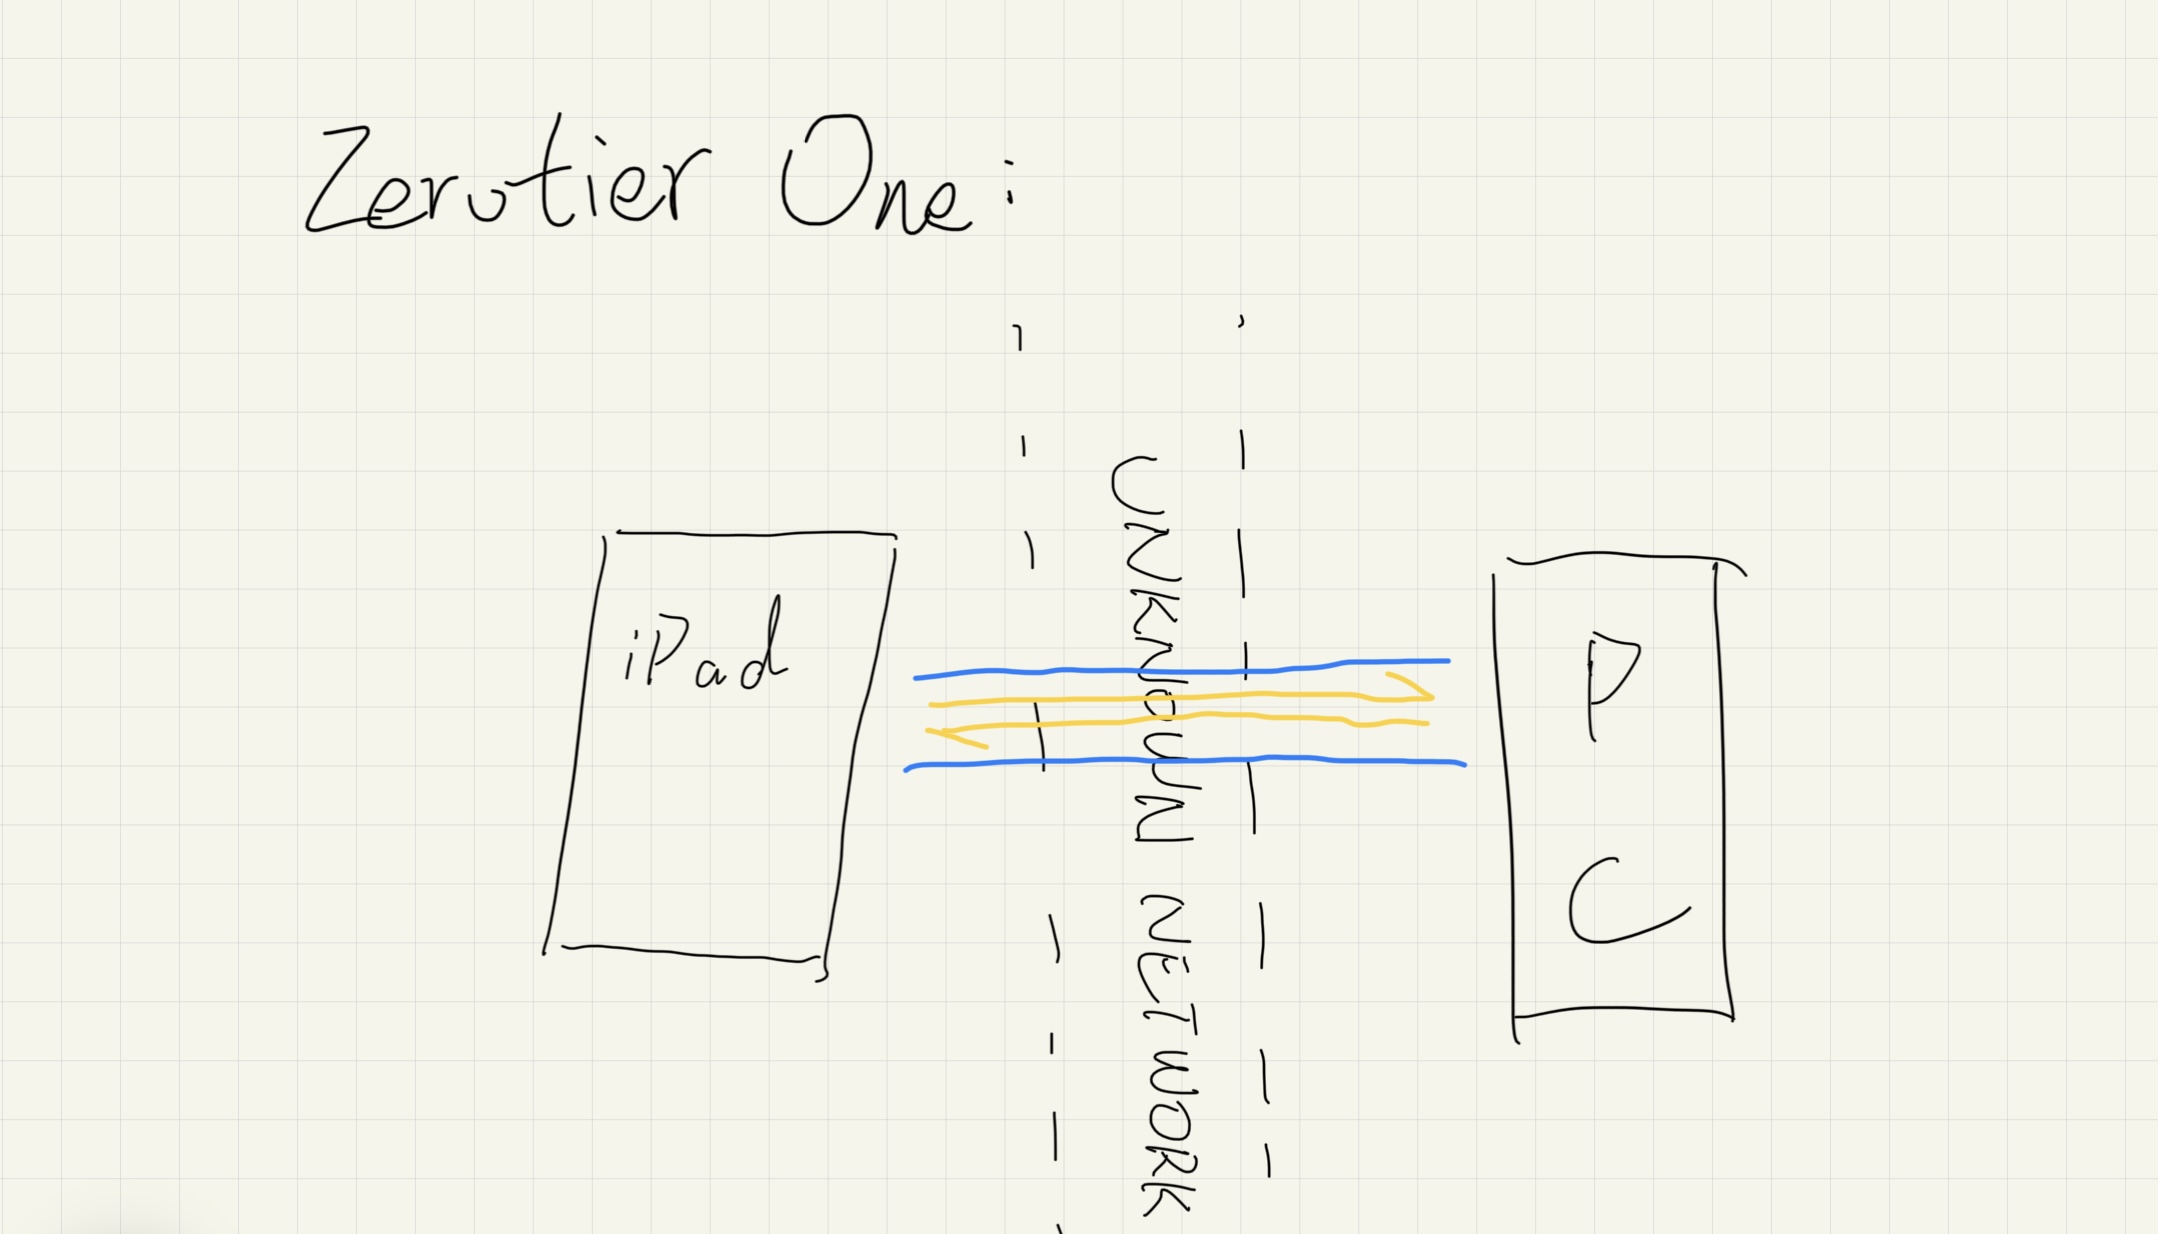 Zerotier One:
iPad
UNKNOWN NETWORK
PC